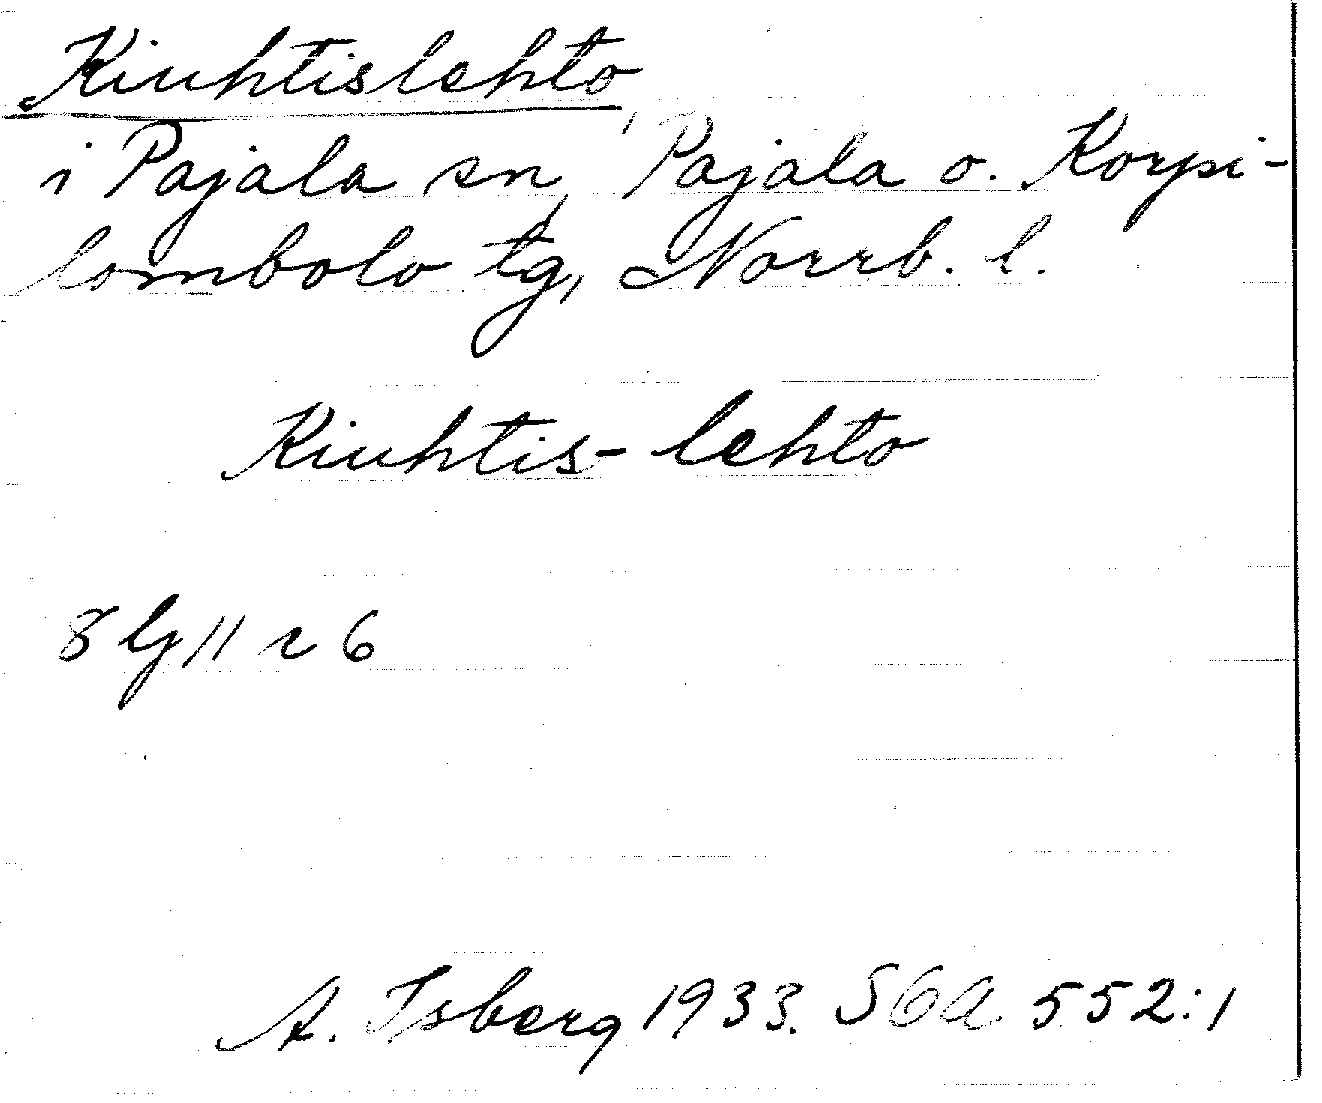 Kiuhtislehto
i Pajala sn, Pajala o. Korpi-
lombolo tg, Norrb. l.
Kiuhtis-lehto
8 lj 11 r 6
A. Isberg 1933. SOA 552:1